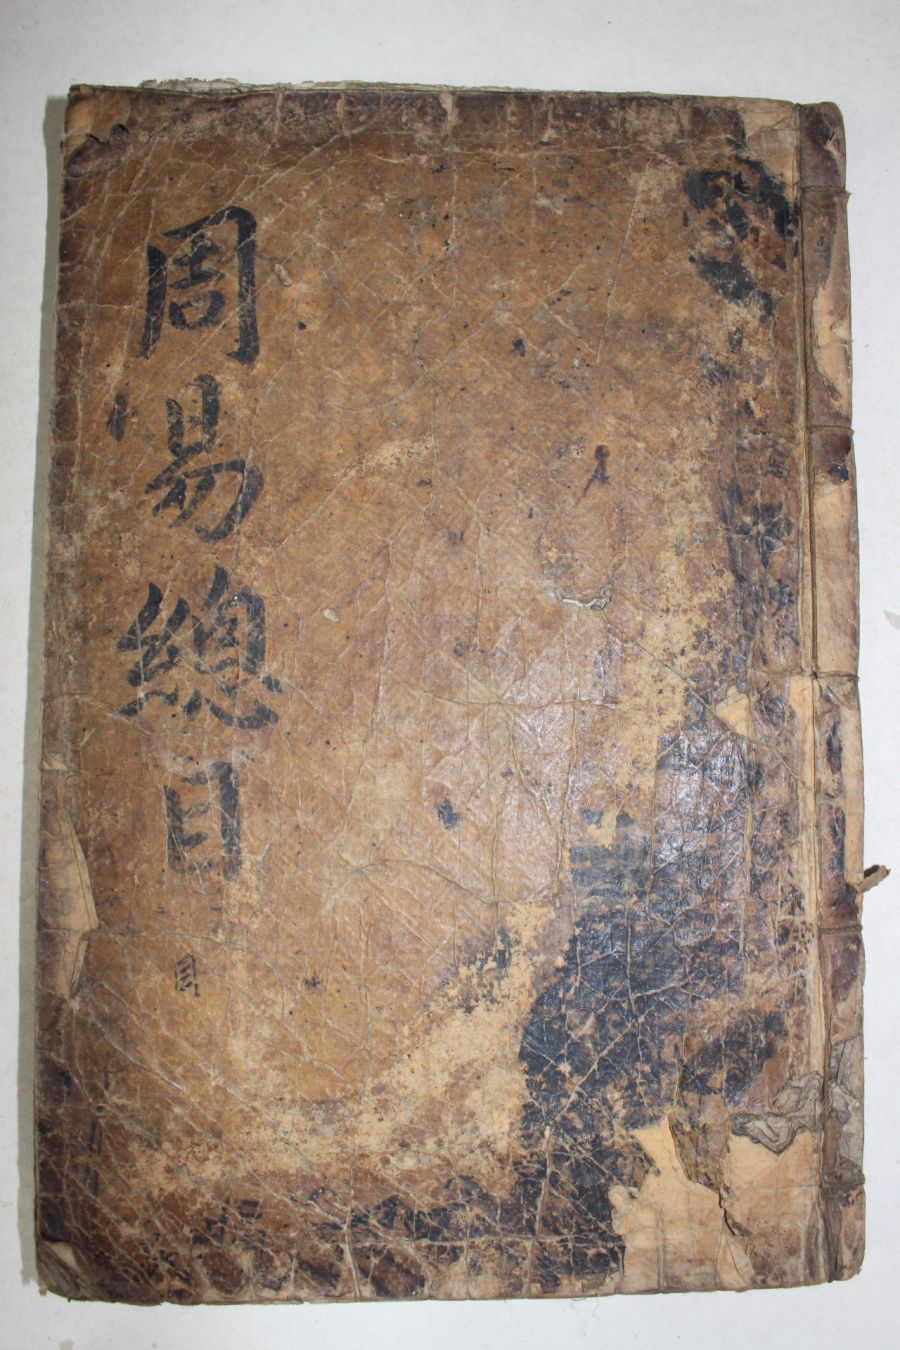 周易總目